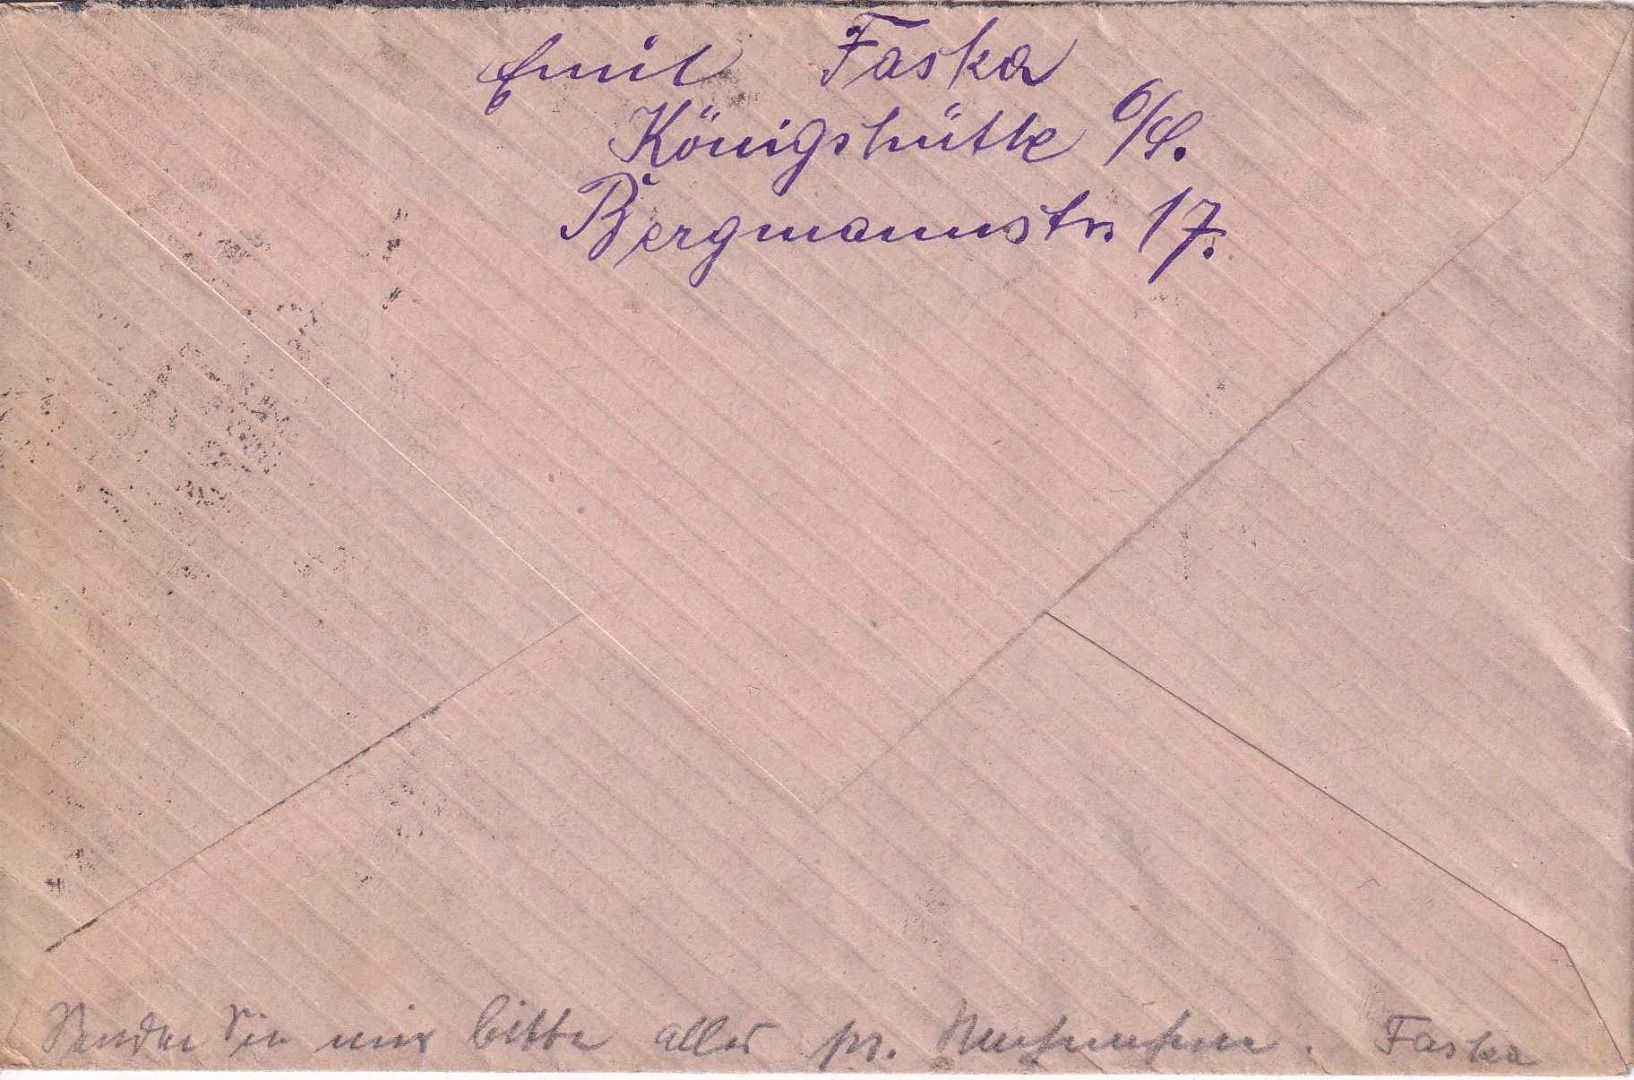 Emil Faska
Königshütte O/S.
Bergmannstr. 17.
Senden Sie mir bitte alles pr. Nachnahme. Faska